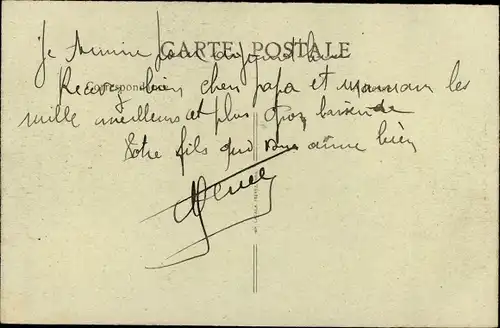 CARTE POSTALE
Je termine pour aujourd'hui
Correspondance
Recevez bien cher papa et maman les
mille meilleurs et plus gros baiser de
Votre fils qui vous aime bien